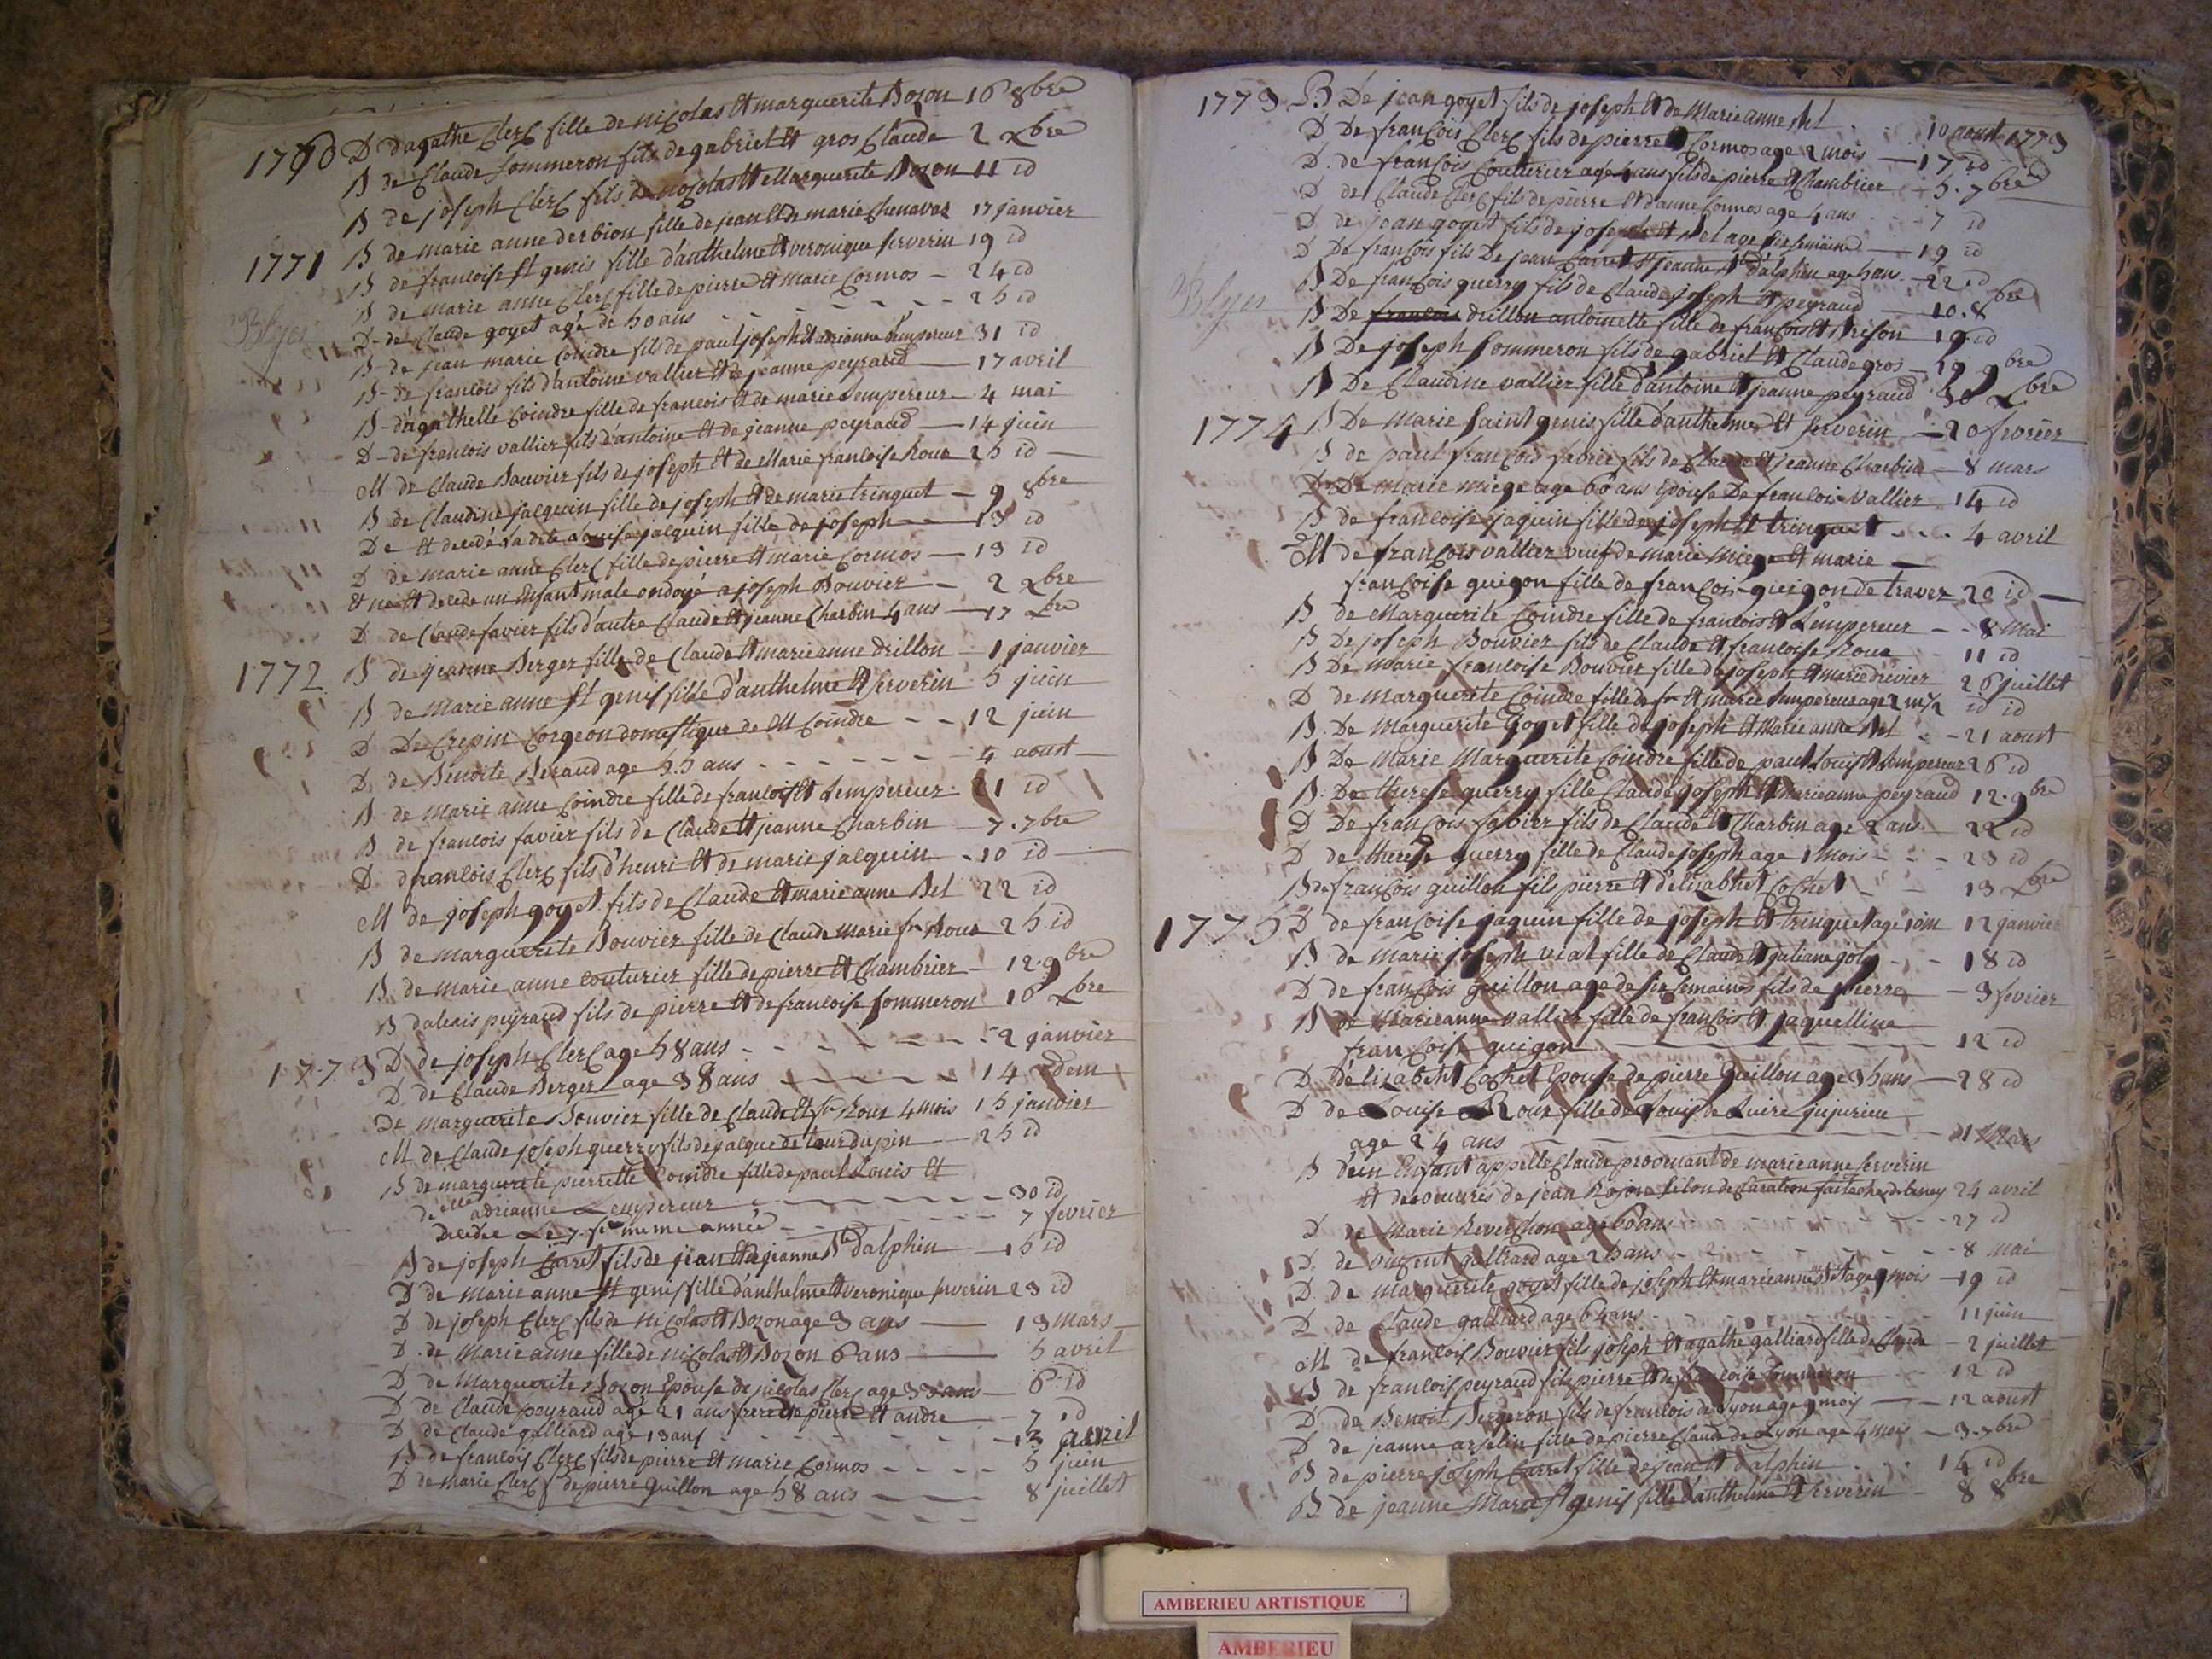 1770 D d'agathe Clerc fille de nicolas et marguerite Bozon 16 8bre
B de Claude Sommeron fils de gabriel et gros Claude 2 xbre
B de joseph Clerc fils de nicolas et Marguerite Bozon 11 id
B de marie anne derbion fille de jean et de marie Chenavas 17 janvier
1771 B de francoise st genis fille d'anthelme et veronique serverin 19 id
B de marie anne Clerc fille de pierre et marie Cormos - 24 id
Blyes
D de Claude goyet agé de 50 ans - - - - 25 id
B de jean marie Coindre fils de paul joseph et adrianne Lempereur 31 id
B de francois fils d'antoine vallier et de jeanne peyraud - 17 avril
B d'agathelle Coindre fille de francois et de marie Lempereur - 4 mai
D de francois vallier fils d'antoine et de jeanne peyraud - 14 juin
M de Claude Bouvier fils de joseph et de Marie francoise Roux 25 id
B de Claudine jacquin fille de joseph et de marie tringuet - 9 8bre
De et decedé la dite jacquin fille de joseph - 13 id
D de marie anne Clerc fille de pierre et marie Cormos - 13 id
et né et decede un enfant male ondoyé a joseph Bouvier - 2 xbre
D de Claude favier fils d'autre Claude et jeanne Charbin 4 ans - 17 xbre
1772 B de jeanne Berger fille de Claude et marie anne drillon - 1 janvier
B de Marie anne st genis fille d'anthelme et Serverin 5 juin
D De Crepin Corgeon domestique de M Coindre - - 12 juin
D de Benoite Beraud age 55 ans - - - - 4 aoust
B de Marie anne Coindre fille de francois et Lempereur 21 id
B de francois favier fils de Claude et jeanne Charbin - 7. 7bre
D francois Clerc fils d'henri et de marie jacquin - 10 id
M de joseph goyet fils de Claude et marie anne Bel 22 id
B de marguerite Bouvier fille de Claude Marie fr Roux 25 id
B de marie anne couturier fille de pierre et Chambrier - 12. 9bre
B d'alexis peyraud fils de pierre et de francoise Sommeron 16 xbre
1773 D de joseph Clerc age 58 ans - - - - 2 janvier
D de Claude Berger age 38 ans - - - - 14 idem
De marguerite Bouvier fille de Claude et fr Roux 4 mois 15 janvier
M de Claude joseph guerry fils de jacque de tour du pin - 25 id
B de marguerite pierrette Coindre fille de paul Louis et
de adrianne Lempereur - - - 30 id
Decede Le 7 meme année - - - 7 fevrier
B de joseph Carret fils de jean et de jeanne dalphin - 15 id
D de marie anne st genis fille d'anthelme et veronique serverin 23 id
D de joseph Clerc fils de Nicolas et Bozon age 3 ans - 13 mars
D de Marie anne fille de nicolas et Bozon 6 ans - 5 avril
D de Marguerite Bozon Epouse de nicolas Clerc age 33 ans - 6 id
D de Claude peyraud age 21 ans frere de pierre et andre - 7 id
D de Claude galliard age 13 ans - - - 13 avril
B de francois Clerc fils de pierre et marie Cormos - - - 5 juin
D de marie Clerc f de pierre guillon age 58 ans - - - 8 juillet
1773 B De jean goyet fils de joseph et de Marie anne Bel - - 10 aoust 1773
D De francois Clerc fils de pierre et Cormos age 2 mois - 17 id
D de francois Couturier age 4 ans fils de pierre et Chambrier - 5. 7bre
D de Claude Clerc fils de pierre et d'anne Cormos age 4 ans - - 7 id
D de jean goyet fils de joseph et Bel age six semaine - 19 id
D De francois fils De jean Carret et jeanne dalphin age 5 an - 22 id
Blyes
B De francois guerry fils de Claude joseph et peyraud - 10. 8bre
B De francois drillon antoinette fille de francois et Brison 19 id
B De joseph Sommeron fils de gabriel et Claude gros - 19 9bre
B De Claudine vallier fille d'antoine et jeanne peyraud 30 xbre
1774 B De Marie Saint genis fille d'anthelme et Serverin - 20 fevrier
B de paul francois favier fils de Claude et jeanne Charbin - 8 mars
D De marie miege age 60 ans Epouse De francois vallier - 14 id
B de francoise jaquin fille de joseph et tringuet - - - 4 avril
M de francois vallier veuf de marie miege et marie
francoise guigon fille de francois guigon de traver 20 id
B de Marguerite Coindre fille de francois et Lempereur - - 8 Mai
B De joseph Bouvier fils de Claude et francoise Roux - 11 id
B De marie francoise Bouvier fille de joseph et marie drevier 26 juillet
D de marguerite Coindre fille de fr et marie Lempereur age 2 m 1/2 id id
B De Marguerite Goyet fille de joseph et Marie anne Bel - - 21 aoust
B De Marie Marguerite Coindre fille de paul Louis et Lempereur 26 id
B De therese guerry fille Claude joseph et Marie anne peyraud 12. 9bre
D De francois favier fils de Claude et Charbin age 2 ans - 22 id
D de therese guerry fille de Claude joseph age 1 mois - - - 23 id
B de francois guillon fils pierre et d'elisabhet Cochet - - 13 xbre
1775 D de francoise jaquin fille de joseph et tringuet age 10 m 12 janvier
B de Marie joseph vial fille de Claude et galiane joly - - 18 id
D de francois guillon age de six semaines fils de pierre - 3 fevrier
B de Marie anne vallier fille de francois et jaquelline
francoise guigon - - - 12 id
D d'elisabeht Cochet Epouse de pierre Guillon age 35 ans - 28 id
D de Louise Roux fille de Louis de Luire jujurieu
age 24 ans - - - 21 Mars
B d'un Enfant appellé Claude provenant de marie anne serverin
et des oeuvres de jean Rojon selon declaration faite 24 avril
D de Marie Reverchon age 60 ans - - - 27 id
D de vincent galliard age 25 ans - - - 8 mai
D de Marguerite goyet fille de joseph et marie anne Bel age 9 mois - 19 id
D de Claude galliard age 64 ans - - - 11 juin
M de francois Bouvier fils joseph et agathe galliard fille de Claude - 2 juillet
B de francois peyraud fils pierre et de francoise Sommeron - 12 id
D de Benoit Bergeron fils de francois de Lyon age 9 mois - 12 aoust
D de jeanne arselin fille de pierre Claude de Lyon age 4 mois - 3. 7bre
B de pierre joseph Carret fille de jean et dalphin - - 14 id
B de jeanne Marie st genis fille d'anthelme et Serverin - 8 8bre
AMBERIEU ARTISTIQUE
AMBERIEU